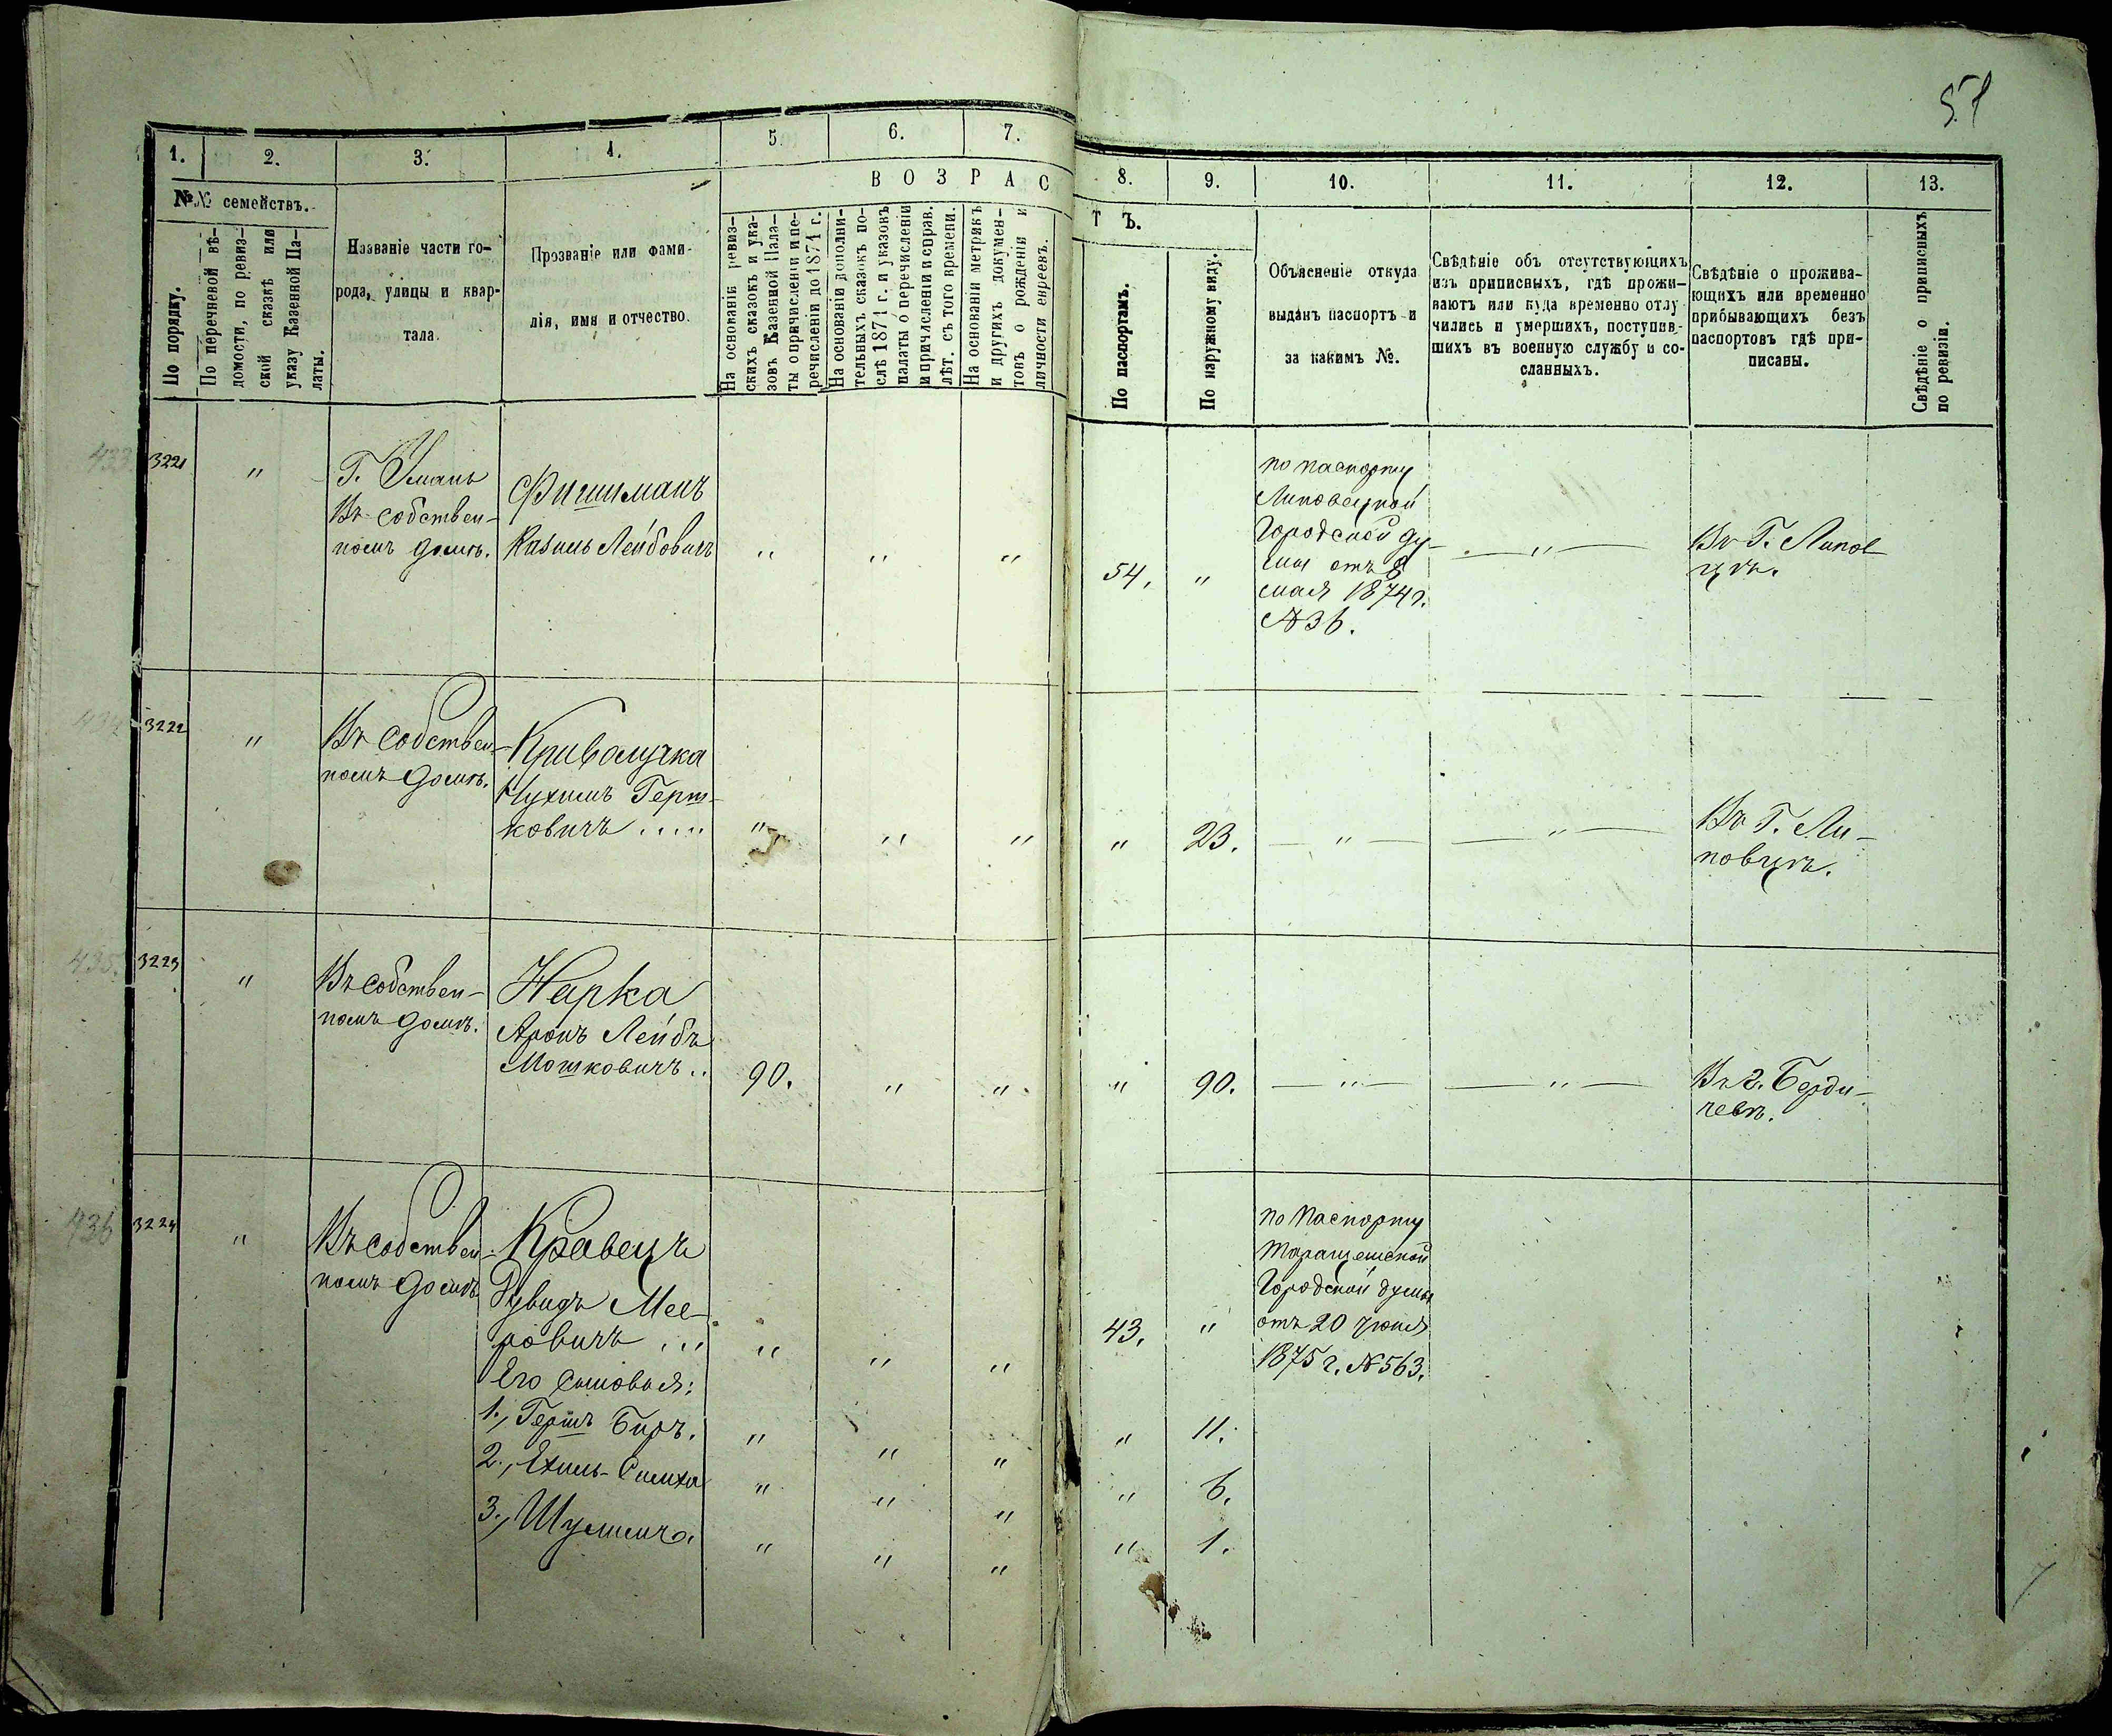 57
1. 2. 3. 4. 5. 6. 7.
8. 9. 10. 11. 12. 13.
№№ семействъ.
По порядку.
По перечневой вѣ-
домости, по ревиз-
ской сказкѣ или
указу Казенной Па-
латы.
Названіе части го-
рода, улицы и квар-
тала.
Прозваніе или фами-
лія, имя и отчество.
ВОЗРАС
ТЪ.
На основаніи ревиз-
скихъ сказокъ и ука-
зовъ Казенной Пала-
ты о причисленіи и пе-
речисленіи до 1871 г.
На основаніи дополни-
тельныхъ сказокъ по-
слѣ 1871 г. и указовъ
палаты о перечисленіи
и причисленіи и справ.
лѣт. съ того времени.
На основаніи метрикъ
и другихъ докумен-
товъ о рожденіи и
личности евреевъ.
По паспортамъ.
По наружному виду.
Объясненіе откуда
выданъ паспортъ и
за какимъ №.
Свѣдѣніе объ отсутствующихъ
изъ приписныхъ, гдѣ прожи-
ваютъ или куда временно отлу-
чились и умершихъ, поступив-
шихъ въ военную службу и со-
сланныхъ.
Свѣдѣніе о прожива-
ющихъ или временно
прибывающихъ безъ
паспортовъ гдѣ при-
писаны.
Свѣдѣніе о приписныхъ
по ревизіи.
433 3221 "
Г. Умань
Въ собствен-
номъ домѣ.
Фишманъ
Казиль Лейбовичъ " " "
54. "
по паспорту
Липовецкой
Городской Ду-
мы отъ 8
мая 1874 г.
№ 36.
— " —
Въ Г. Липов
цѣ.
434 3222 "
Въ собствен-
номъ домѣ.
Криволучка
Нухимъ Герш-
ковичъ ..... " " "
" 23. — " — — " —
Въ Г. Ли-
повцѣ.
435. 3223 "
Въ собствен-
номъ домѣ.
Нарка
Аронъ Лейбъ
Мошковичъ .. 90. " "
" 90. — " — — " —
Въ г. Берди-
чевѣ.
436 3224 "
Въ собствен-
номъ домѣ
Кравецъ
Дувидъ Мее-
ровичъ ... " " "
43. "
по паспорту
Таращанской
Городской думы
отъ 20 Іюня
1875 г. № 563.
Его сыновья:
1., Гершъ Биръ. " " " " 11.
2., Ехиль-Симха " " " " 6.
3., Шулимъ. " " " " 1.